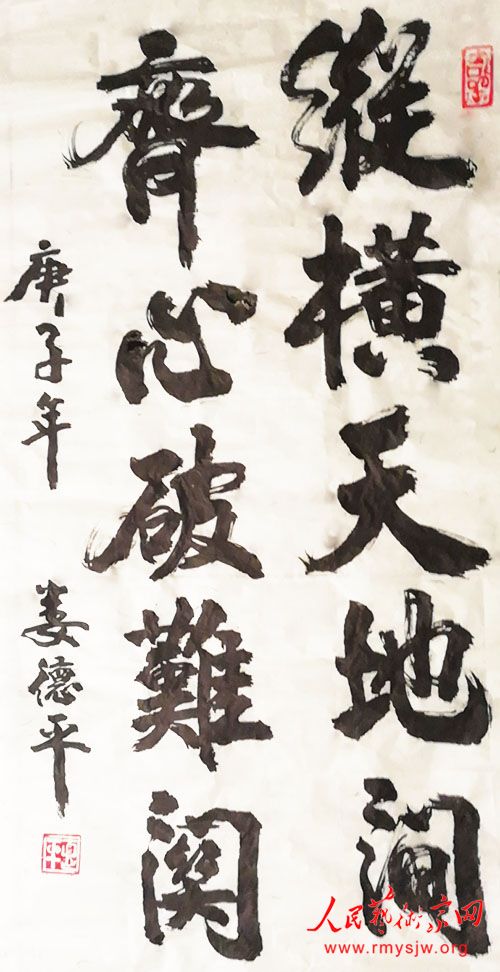 縱橫天地间
齊心破難関
庚子年 娄德平
人民藝術家网
www.rmysjw.org